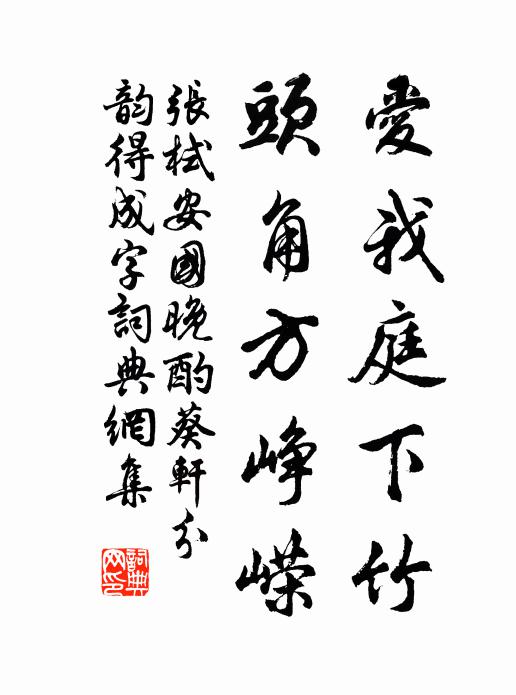 愛我庭下竹
頭角方崢嶸
張栻安國晚酌葵軒分
韵得成字詞典網集
詞典網印